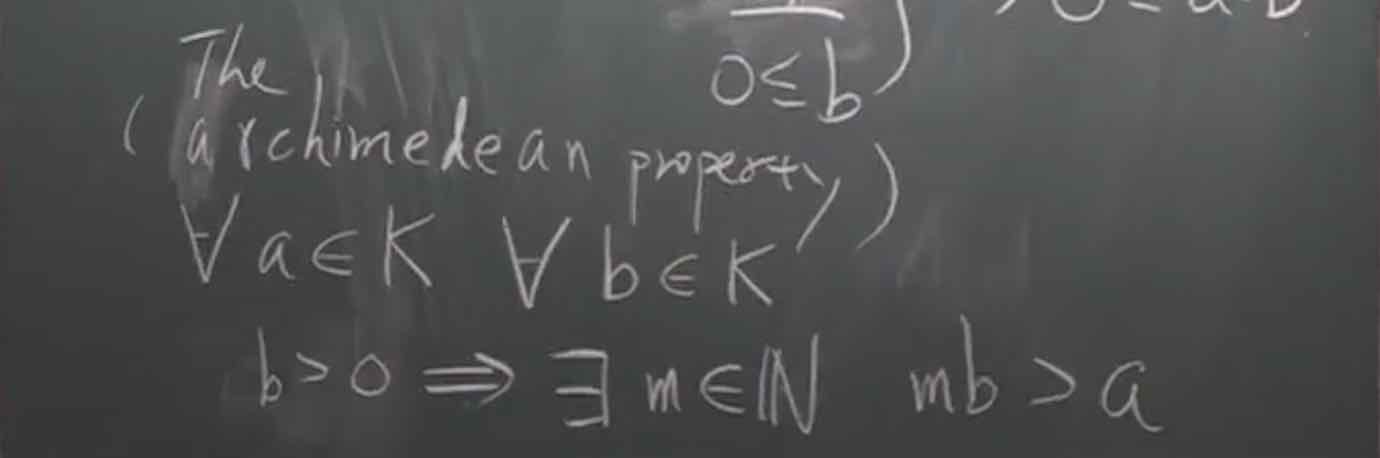 The
0≤b)
(archimedean property)
∀ a∈K ∀ b∈K
b>0 ⟹ ∃ m∈ℕ mb>a